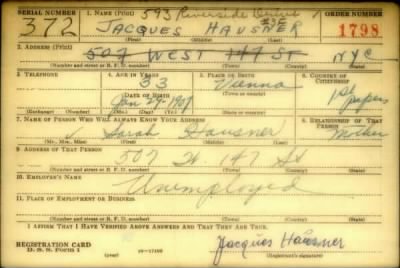 SERIAL NUMBER 1. NAME (Print) 593 Riverside Drive ORDER NUMBER
372 JACQUES HAUSNER 1798
(First) (Middle) (Last)
2. ADDRESS (Print)
507 WEST 147 ST NYC
(Number and street or R. F. D. number) (Town) (County) (State)
3. TELEPHONE 4. AGE IN YEARS 5. PLACE OF BIRTH 6. COUNTRY OF CITIZENSHIP
33 Vienna 1st papers
DATE OF BIRTH (Town or county)
Jan 29 1907
(Exchange) (Number) (Mo.) (Day) (Yr.) (State or country)
7. NAME OF PERSON WHO WILL ALWAYS KNOW YOUR ADDRESS 8. RELATIONSHIP OF THAT PERSON
Sarah Hausner Mother
(Mr., Mrs., Miss) (First) (Middle) (Last)
9. ADDRESS OF THAT PERSON
507 W. 147 St
(Number and street or R. F. D. number) (Town) (County) (State)
10. EMPLOYER'S NAME
Unemployed
11. PLACE OF EMPLOYMENT OR BUSINESS
(Number and street or R. F. D. number) (Town) (County) (State)
I AFFIRM THAT I HAVE VERIFIED ABOVE ANSWERS AND THAT THEY ARE TRUE.
REGISTRATION CARD Jacques Hausner
D. S. S. Form 1 (over) (Registrant's signature)